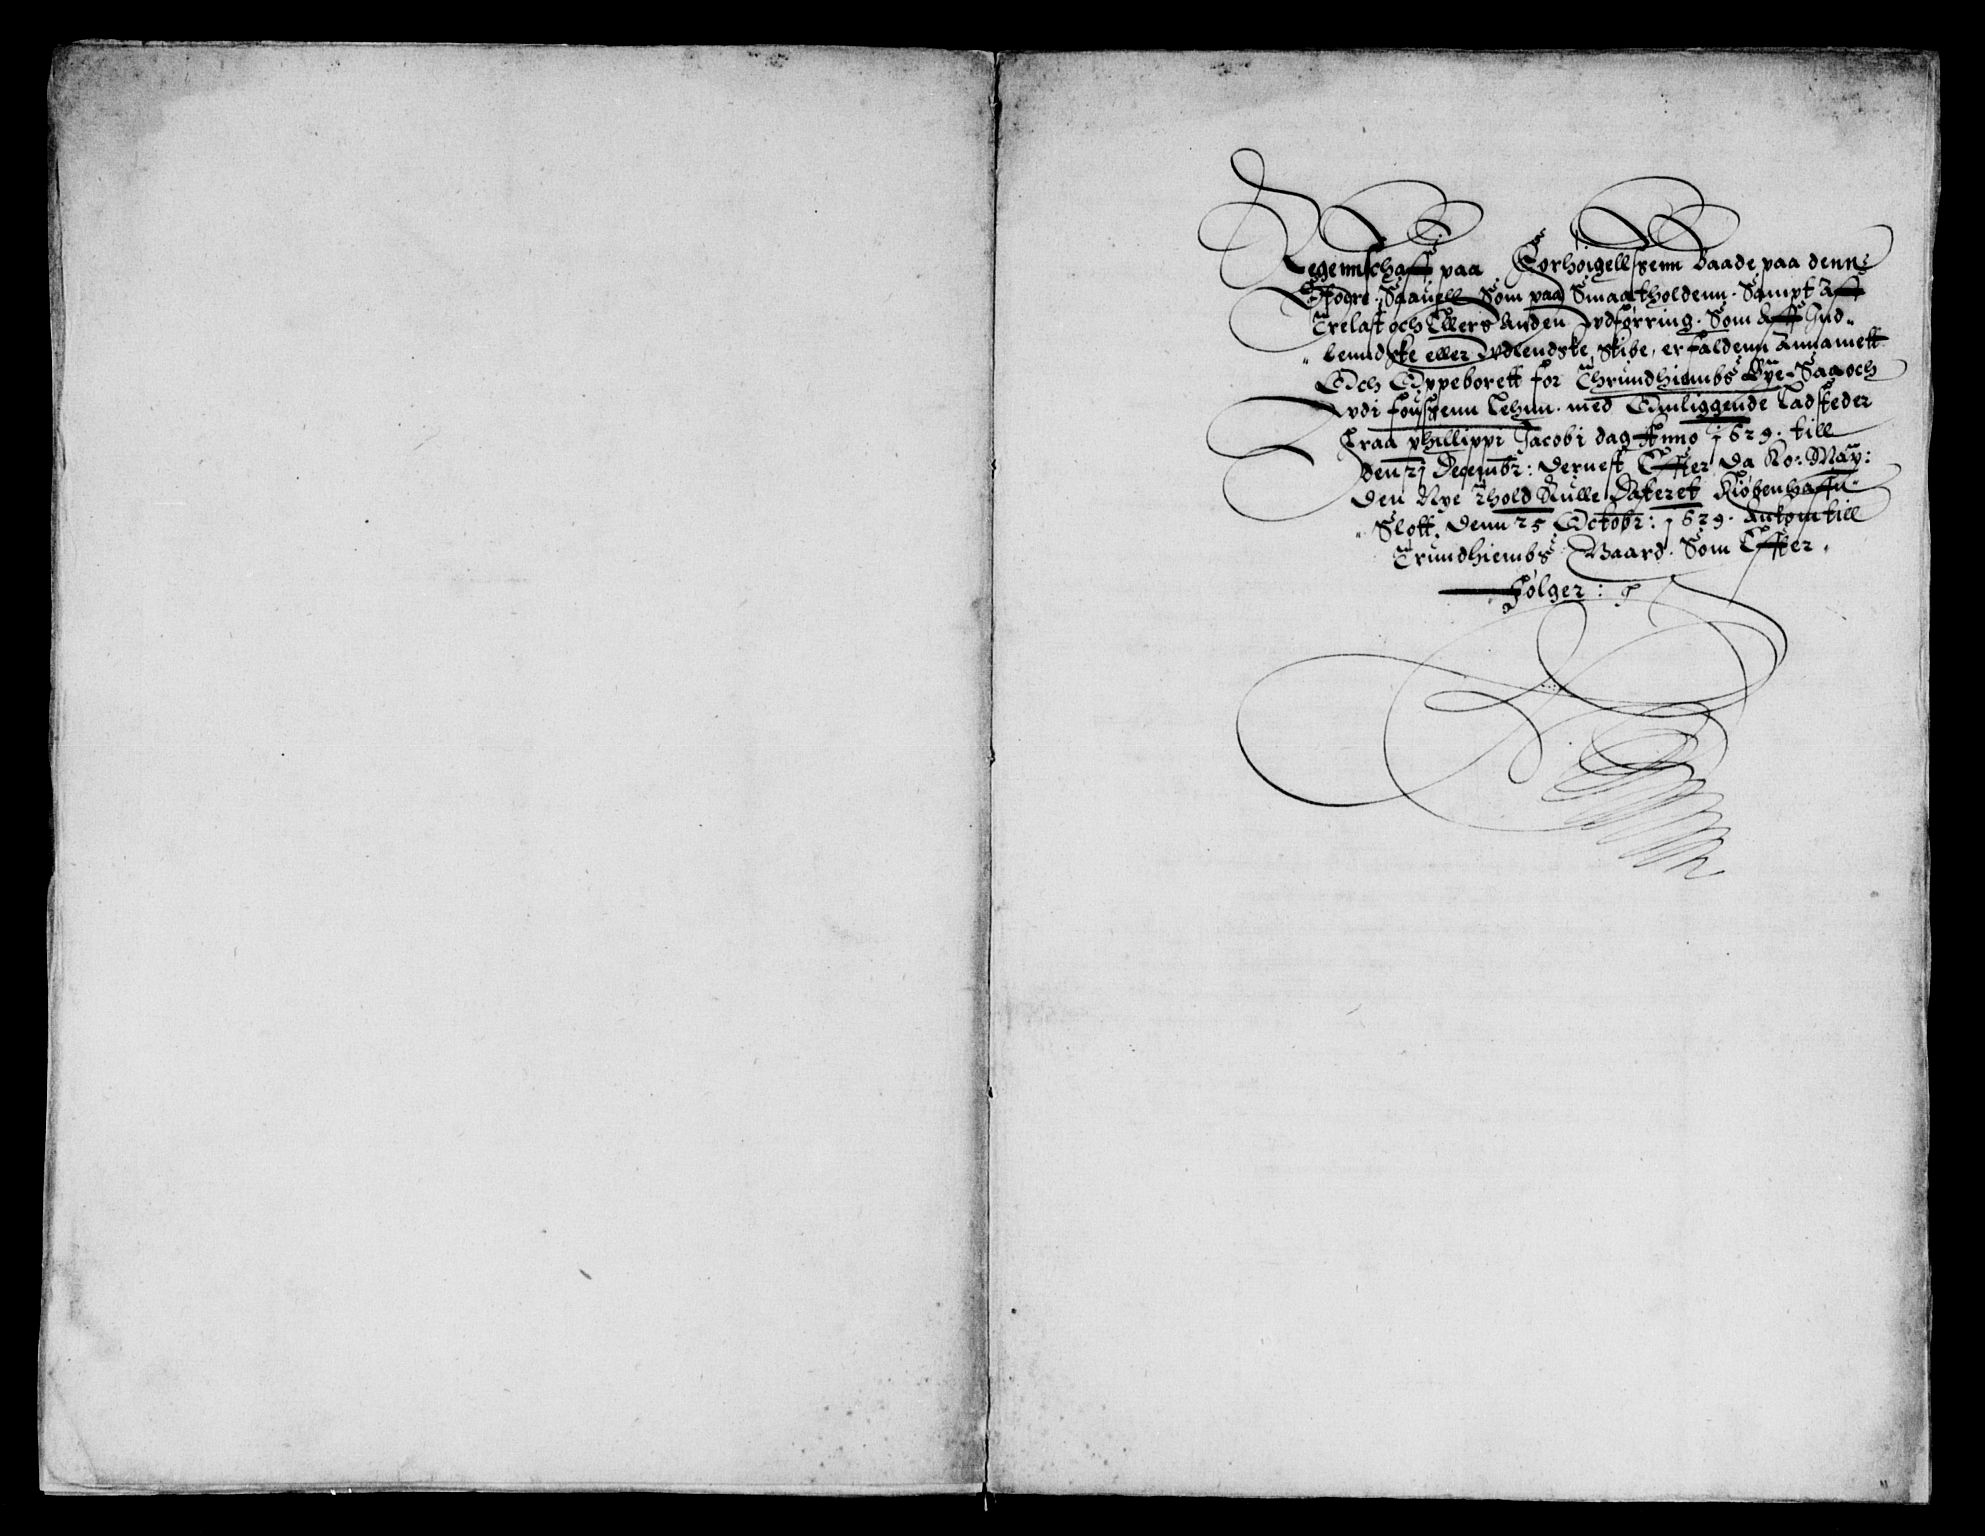 Regennschaff paa Forhøigellssenn Baade paa denn
Store Saauell Som paa Smaa tholdenn Sampt Aff
Trelast och Ellers Anden Vdførring. Som Aff Ind-
lenndske eller Vdlendske Skibe, er faldenn Annamett
Och Oppeborett for Thrundhiembs Bye Saa och
Vdi fougsenn Lehnn med Omliggende Ladsteder
Fraa phillippi Jacobi dag Anno 1629. till
den 21 Decembr: Dernest Effter Da Ko: May:
Den Nye thold Rulle Dateret Kiøbenhaffn
Slott. Denn 25 Octobr: 1629. Ankom till
Trundhiembs Gaard. Som Effter
Følger: